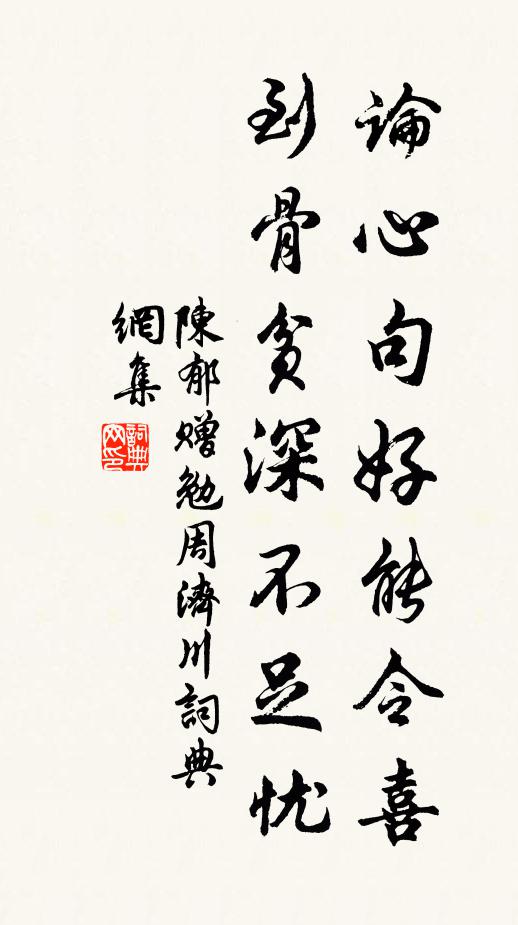 論心句好能令喜
到骨貧深不足忧
陳郁贈勉周濟川詞典
網集
詞典
网印